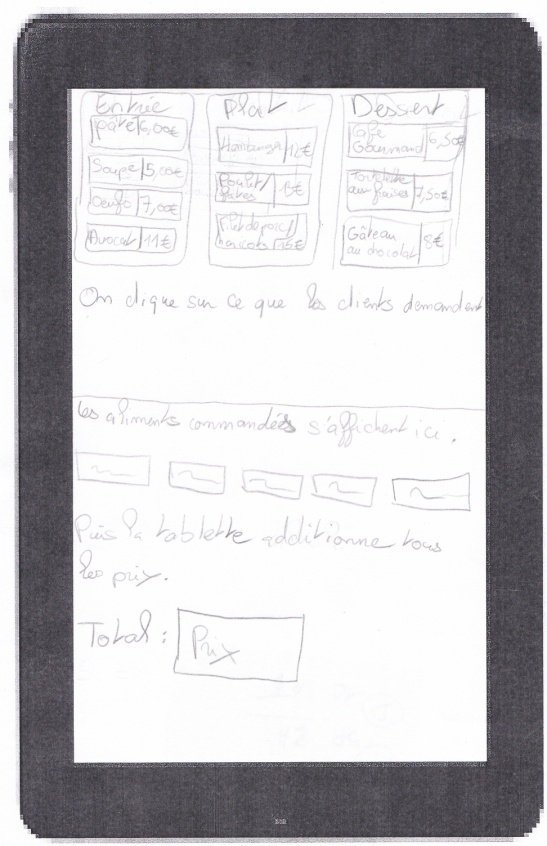 Entrée
Pâté 6,00€
Soupe 5,00€
Oeufs 7,00€
Avocat 11€
Plat
Hamburger 12€
Poulet/
pâtes
Filet de porc/
haricots 15€
Dessert
Café
Gourmand 6,50€
Tartelette
aux fraises 7,50€
Gâteau
au chocolat 8€
On clique sur ce que les clients demandent
Les aliments commandés s'affichent ici.
Puis la tablette additionne tous
les prix.
Total : Prix